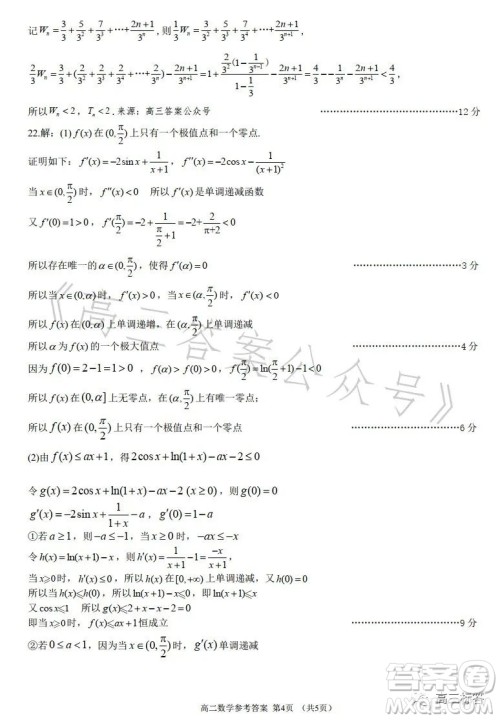 记Wₙ=5/3+5/3²+7/3³+…+(2n+1)/3ⁿ,则1/3Wₙ=3/3²+5/3³+7/3⁴+…+(2n+1)/3ⁿ⁺¹,
2/3Wₙ=3/3+(2/3²+2/3³+2/3⁴+…+2/3ⁿ)-(2n+1)/3ⁿ⁺¹=1+(2/3²(1-1/3ⁿ⁻¹))/(1-1/3)-(2n+1)/3ⁿ⁺¹=4/3-1/3ⁿ-(2n+1)/3ⁿ⁺¹,
所以Wₙ<2,Tₙ<2.来源:高三答案公众号 12分
22.解:(1)f(x)在(0,π/2)上只有一个极值点和一个零点.
证明如下:f′(x)=-2sinx+1/(x+1),f″(x)=-2cosx-1/(x+1)²
当x∈(0,π/2)时,f″(x)<0 所以f′(x)是单调递减函数
又f′(0)=1>0,f′(π/2)=-2+1/(π/2+1)=-2+2/(π+2)<0
所以存在唯一的α∈(0,π/2),使得f′(α)=0 3分
当x∈(0,α)时,f′(x)>0,当x∈(α,π/2)时,f′(x)<0
所以f(x)在(0,α)上单调递增,在(α,π/2)上单调递减
所以α为f(x)的一个极大值点 4分
因为f(0)=2-1=1>0,f(α)>f(0)>0,f(π/2)=ln(π/2+1)-1<0
所以f(x)在(0,α]上无零点,在(α,π/2)上有唯一零点
所以f(x)在(0,π/2)上只有一个极值点和一个零点 6分
(2)由f(x)≤ax+1,得2cosx+ln(1+x)-ax-2≤0
令g(x)=2cosx+ln(1+x)-ax-2(x≥0),则g(0)=0
g′(x)=-2sinx+1/(1+x)-a,g′(0)=1-a
①若a≥1,则-a≤-1,当x≥0时,-ax≤-x
令h(x)=ln(x+1)-x,则h′(x)=1/(x+1)-1=-x/(x+1),
当x≥0时,h′(x)≤0,所以h(x)在[0,+∞)上单调递减,又h(0)=0
所以当h(x)≤h(0),所以ln(x+1)-x≤0,即ln(x+1)≤x
又cosx≤1 所以g(x)≤2+x-x-2=0
即当x≥0时,f(x)≤ax+1恒成立 9分
②若0≤a<1,因为当x∈(0,π/2)时,g′(x)单调递减
高二数学参考答案 第4页 (共5页)
《高三答案公众号》
高三标答
答案圈